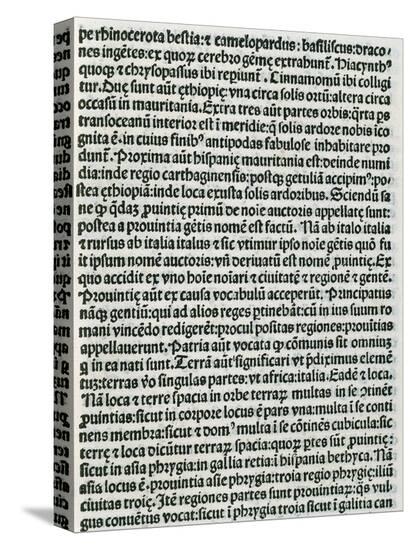 pe rhinocerota bestia: ⁊ camelopardus: basiliscus: draco-
nes ingētes: ex quoꝝ cerebro gēmę extrahunt̄. Hiacynthꝰ
quoqꝫ ⁊ chrysopassus ibi repiunt̄. Cinnamomū ibi colligi
tur. Duę sunt aūt ęthiopię: vna circa solis ortū: altera circa
occasū in mauritania. Extra tres aūt partes orbis: q̄rta ps
transoceanū interior est i meridie: q̄ solis ardore nobis ico
gnita ē. in cuius finibꝰ antipodas fabulose inhabitare pro
dunt̄. Proxima aūt hispanię mauritania est: deinde numi
dia: inde regio carthaginensis: postqꝫ getuliā accipimꝰ: po-
stea ęthiopiā: inde loca exusta solis ardoribus. Sciendū sa
ne ꝙ q̄daꝫ ꝓuintię primū de noīe auctoris appellatę sunt:
postea a prouintia gētis nomē est factū. Nā ab italo italia
⁊ rursus ab italia italus ⁊ sic vtimur ipso noīe gētis quō fu
it ipsum nomē auctoris: vn̄ deriuatū est nomē ꝓuintię. Ex
quo accidit ex vno hoīe noīari ⁊ ciuitatē ⁊ regionē ⁊ gentē.
Prouintię aūt ex causa vocabulū acceperūt. Principatus
nāqꝫ gentiū: qui ad alios reges ptinebāt: cū in ius suum ro
mani vincēdo redigerēt: procul positas regiones: prouītias
appellauerunt. Patria aūt vocata ꝙ cōmunis sit omniuꝫ
q̄ in ea nati sunt. Terrā aūt significari vt p̄diximus elemē
tuꝫ: terras vo singulas partes: vt africa: italia. Eadē ⁊ loca.
Nā loca ⁊ terre spacia in orbe terraꝝ multas in se ↄtinēt
ꝓuintias: sicut in corpore locus ē pars vna: multa ī se conti
nens membra: sicut ⁊ domꝰ multa ī se cōtinēs cubicula: sic
terrę ⁊ loca dicūtur terraꝝ spacia: quoꝝ ptes sūt ꝓuintię:
sicut in asia phrygia: in gallia retia: ī hispania bethyca. Nā
asia locus ē. prouintia asię phrygia: troia regio phrygię: iliū
ciuitas troię. Itē regiones partes sunt prouintiaꝝ: q̄s vul
gus conuētus vocat: sicut ī phrygia troia sicut ī gallia can